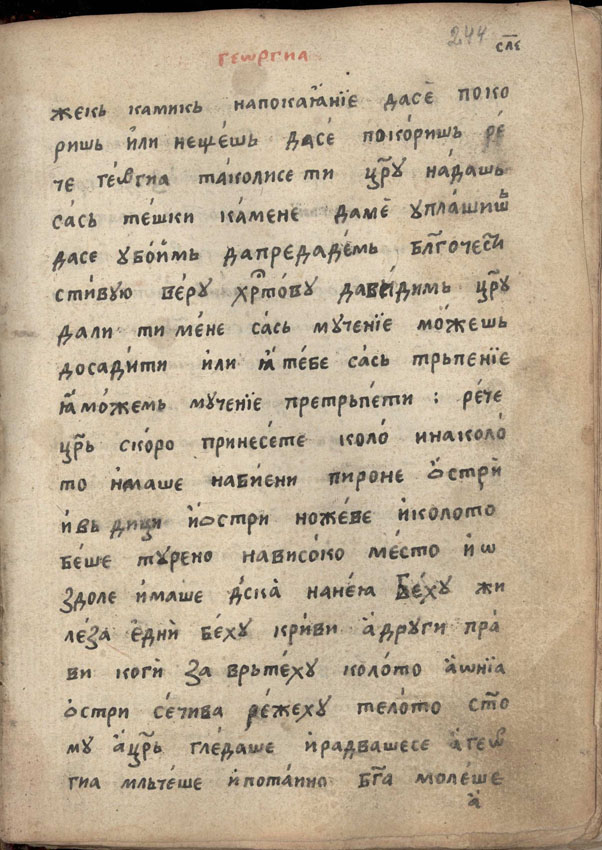 244 слє
геѡргиа
жекь камикь напокаꙗ́нїе дасѐ поко
ришь и҆ли нещѐшь дасѐ поко́ришь ре́
че гео́ргиа та́колисе ти цр҃у на́дашь
са́сь тѐшки ка́мене дамѐ упла́шишь
дасе убои́мь дапредаде́мь бл҃гочести
стивую ве́ру хр҃то́ву дави́димь цр҃у
дали ти мѐне са́сь мучѐнїе мо́жешь
досади́ти и҆ли ꙗ҆ тѐбе са́сь трьпѐнїе
ꙗ҆мо́жемь мучѐнїе претрьпѐти : рѐче
цр҃ь ско́ро принесѐте коло̀ инаколо̀
то и҆маше наби́ени пироне о҆стрѝ
и҆вь дици и҆о҆стри ножѐве и҆колото
бѐше ту́рено нависо́ко мѐсто и҆ ѡ
здоле и҆маше дска̀ нанѐю Бѐху жи
лѐза е҆днѝ бѐху кри́ви а҆други пра́
ви когѝ за врьтѐху коло́то а҆ѡни́а
о҆стри сѐчива рѐжеху тело́то ст҃о
му а҆цр҃ь глѐдаше и҆радвашесе а҆геѡ
гиа мльтѐше и҆пота́ино бг҃а молѐше
а҆